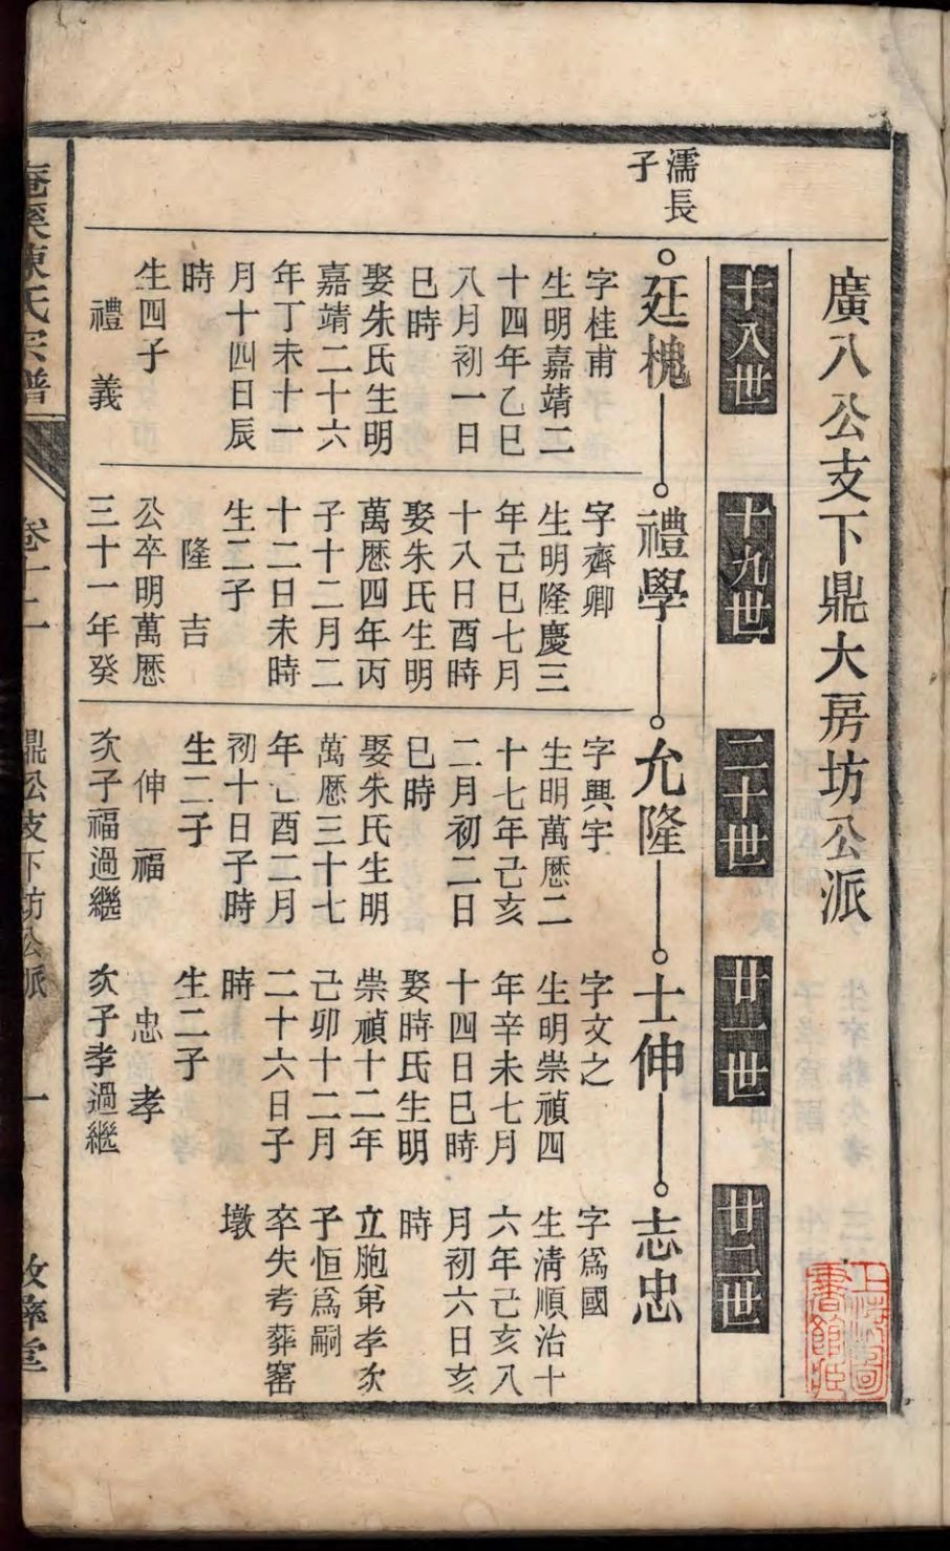 廣八公支下鼎大房坊公派
十八世
十九世
二十世
廿一世
廿二世
濡長
子
廷槐
字桂甫
生明嘉靖二
十四年乙巳
八月初一日
巳時
娶朱氏生明
嘉靖二十六
年丁未十一
月十四日辰
時
生四子
禮 義
禮學
字齊卿
生明隆慶三
年己巳七月
十八日酉時
娶朱氏生明
萬厯四年丙
子十二月二
十二日未時
生二子
隆 吉
公卒明萬厯
三十一年癸
允隆
字興宇
生明萬厯二
十七年己亥
二月初二日
巳時
娶朱氏生明
萬厯三十七
年己酉二月
初十日子時
生二子
伸 福
次子福過繼
士伸
字文之
生明崇禎四
年辛未七月
十四日巳時
娶時氏生明
崇禎十二年
己卯十二月
二十六日子
時
生二子
忠 孝
次子孝過繼
志忠
字爲國
生清順治十
六年己亥八
月初六日亥
時
立胞弟孝次
子恒爲嗣
卒失考葬窑
墩
陳氏宗譜
卷十二
鼎公支下坊公派
一